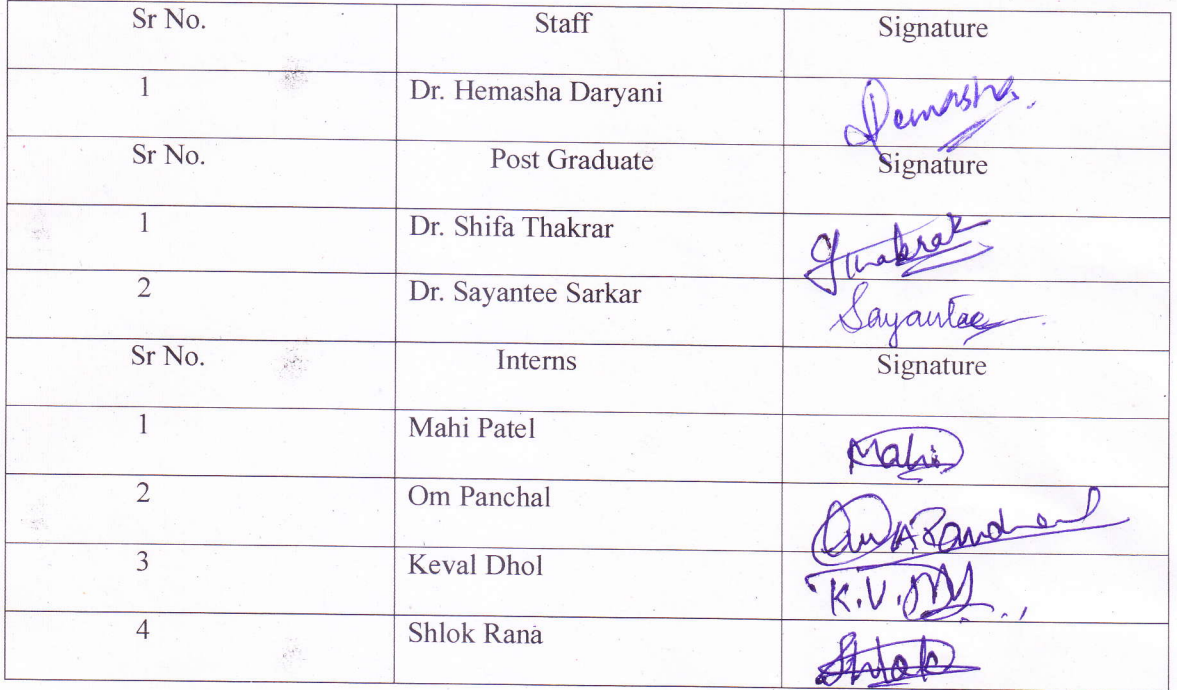 Sr No. Staff Signature
1 Dr. Hemasha Daryani Hemasha
Sr No. Post Graduate Signature
1 Dr. Shifa Thakrar Thakrar
2 Dr. Sayantee Sarkar Sayantee
Sr No. Interns Signature
1 Mahi Patel Mahi
2 Om Panchal Om A Panchal
3 Keval Dhol K.V.
4 Shlok Rana Shlok